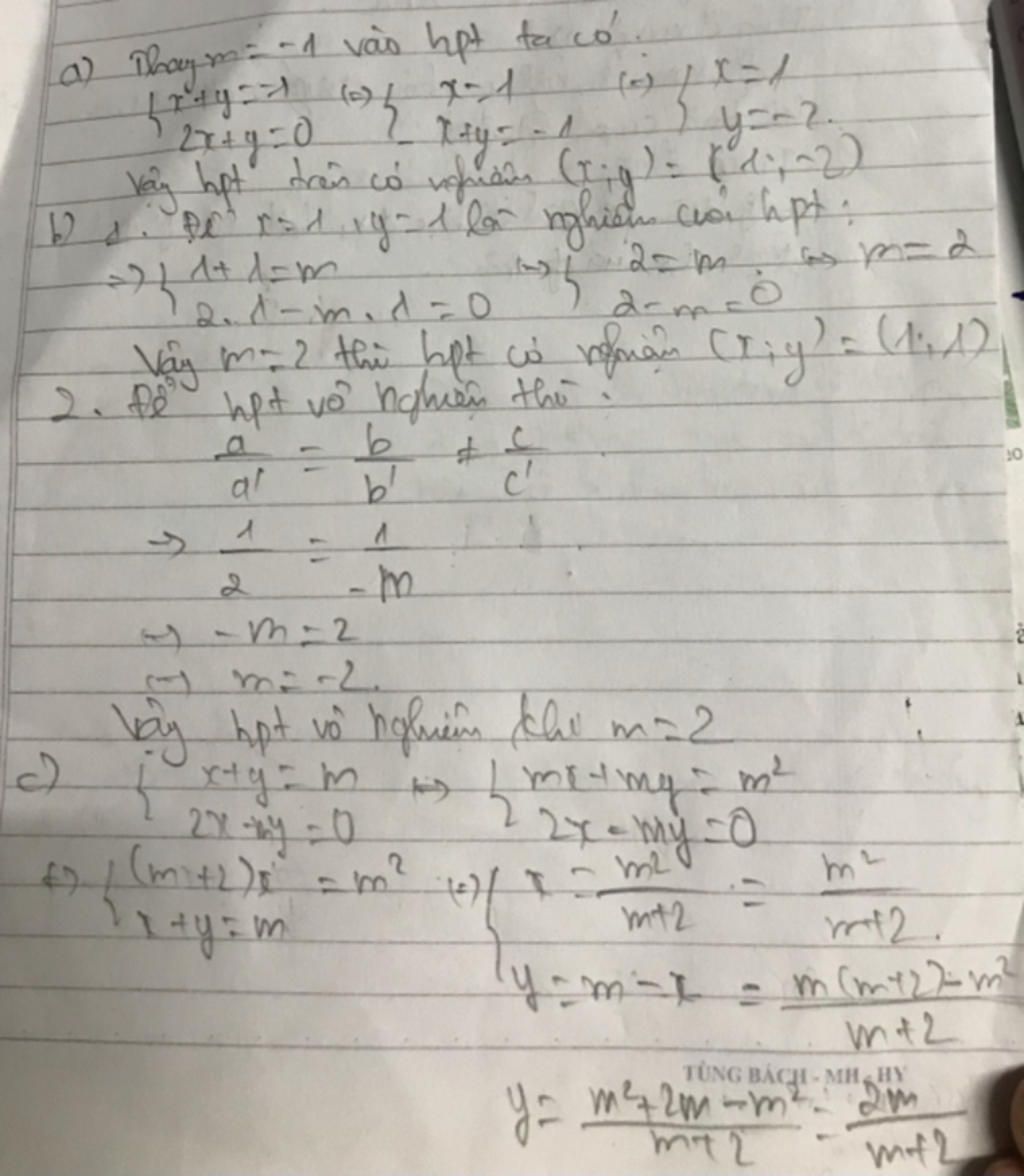 a) Thay m = -1 vào hpt ta có.
{ x+y = -1 (=) { x=1 (=) { x=1
2x+y=0 x+y = -1 y=-2.
Vậy hpt trên có nghiệm (x;y) = (1;-2)
b) 1. Để x=1, y=1 là nghiệm của hpt:
=> { 1+1=m <=> { 2=m <=> m=2
2.1-m.1=0 2-m=0
Vậy m=2 thì hpt có nghiệm (x;y) = (1;1)
2. Để hpt vô nghiệm thì:
a/a' = b/b' ≠ c/c'
=> 1/2 = 1/-m
<=> -m=2
<=> m=-2.
Vậy hpt vô nghiệm khi m=2
c) { x+y=m <=> { mx+my=m²
2x-my=0 2x-my=0
<=> { (m+2)x = m² (=) { x = m²/m+2 = m²/m+2.
x+y=m
y=m-x = m(m+2)-m²/m+2
TÙNG BÁCH - MH - HY
y= m²+2m-m²/m+2 = 2m/m+2